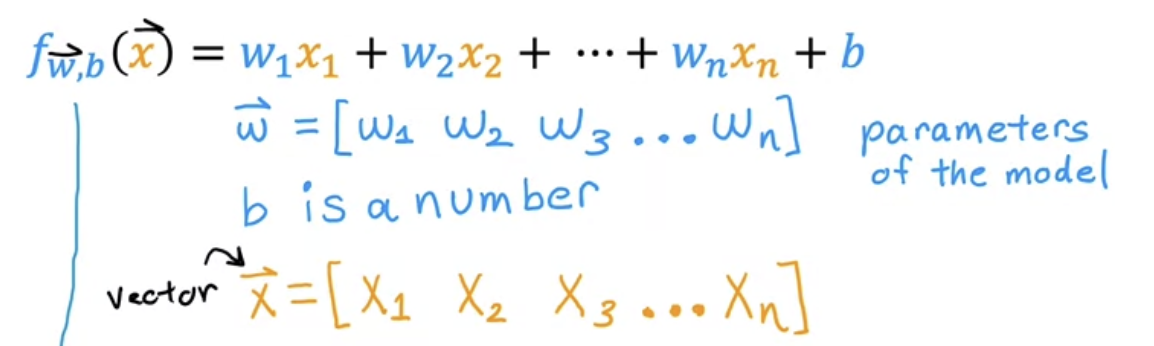 f_{w⃗,b}(x⃗) = w₁x₁ + w₂x₂ + ⋯ + wₙxₙ + b
w⃗ = [w₁ w₂ w₃ ... wₙ] parameters
of the model
b is a number
vector x⃗ = [x₁ x₂ x₃ ... xₙ]